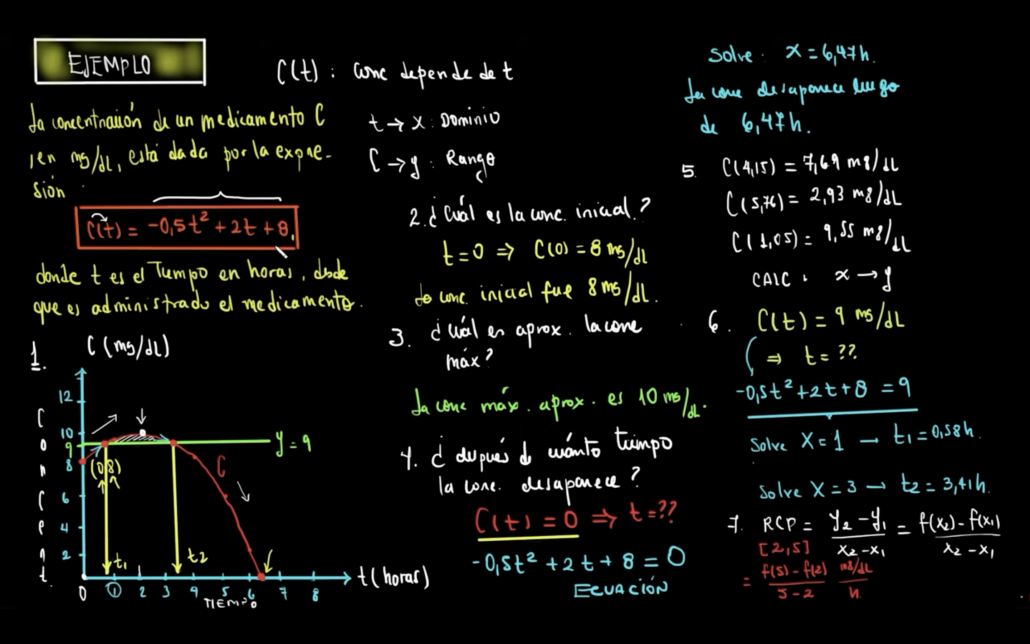 EJEMPLO
La concentración de un medicamento C
, en mg/dL, está dada por la expre-
sión
C(t) = -0,5t² + 2t + 8,
donde t es el Tiempo en horas, desde
que es administrado el medicamento.
1. C (mg/dL)
12
10
9
8
6
4
2
0
CONCENT.
(0,8)
y = 9
C
t₁
t₂
① 2 3 4 5 6 7 8
t (horas)
TIEMPO
C(t) : conc depende de t
t → x : Dominio
C → y : Rango
2. ¿Cuál es la conc. inicial?
t = 0 ⇒ C(0) = 8 mg/dL
La conc. inicial fue 8 mg/dL.
3. ¿Cuál es aprox. la conc
máx?
La conc máx. aprox. es 10 mg/dL.
4. ¿después de cuánto tiempo
la conc. desaparece?
C(t) = 0 ⇒ t = ??
-0,5t² + 2t + 8 = 0
ECUACIÓN
Solve : X = 6,47h.
La conc desaparece luego
de 6,47h.
5. C(4,15) = 7,69 mg/dL
C(5,76) = 2,93 mg/dL
C(1,05) = 9,55 mg/dL
CALC : x → y
6. C(t) = 9 mg/dL
⇒ t = ??
-0,5t² + 2t + 8 = 9
Solve X = 1 → t₁ = 0,58h.
Solve X = 3 → t₂ = 3,41h.
7. RCP = (y₂ - y₁)/(x₂ - x₁) = (f(x₂) - f(x₁))/(x₂ - x₁)
[2,5]
= (f(5) - f(2))/(5 - 2) (mg/dL)/h